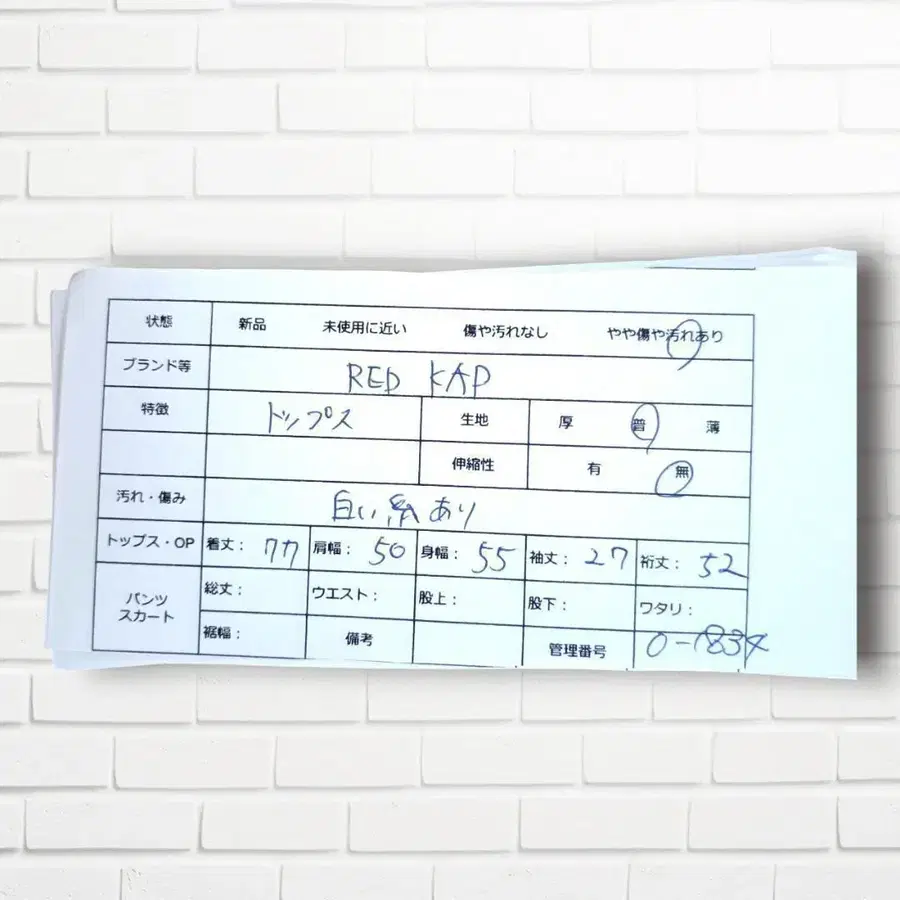 状態 新品 未使用に近い 傷や汚れなし やや傷や汚れあり
ブランド等 RED KAP
特徴 トップス 生地 厚 普 薄
伸縮性 有 無
汚れ・傷み 白い糸あり
トップス・OP 着丈: 77 肩幅: 50 身幅: 55 袖丈: 27 裄丈: 52
パンツ スカート 総丈: ウエスト: 股上: 股下: ワタリ:
裾幅: 備考 管理番号 0-1834